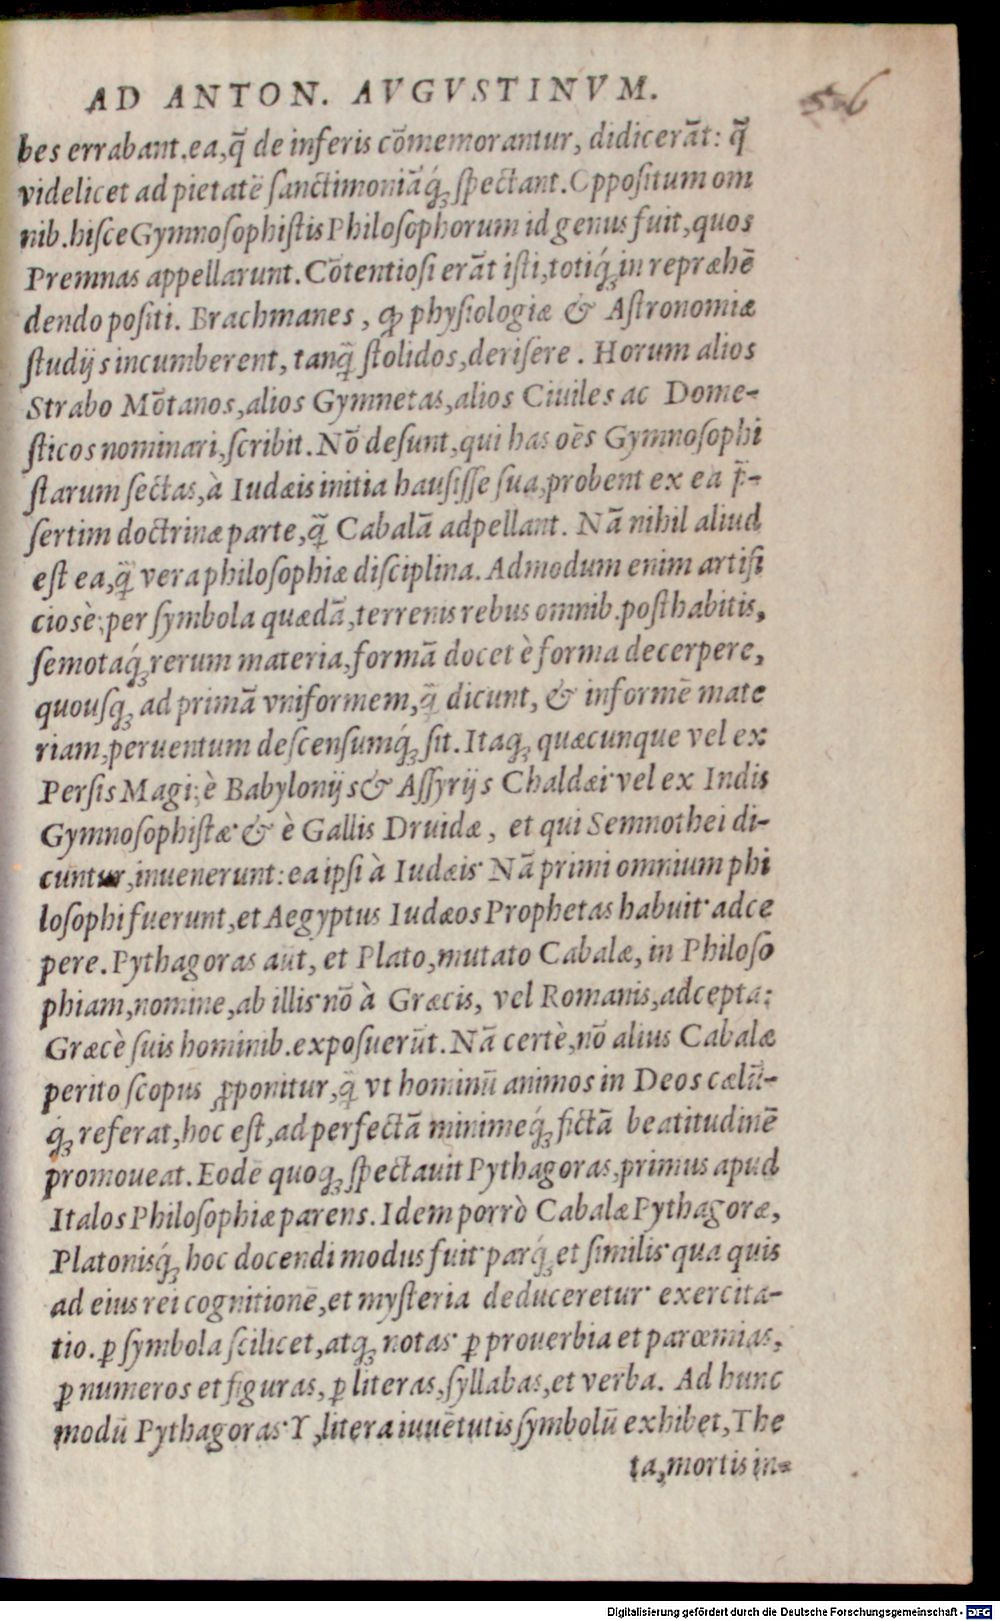 AD ANTON. AVGVSTINVM.
bes errabant, ea, q̃ de inferis cõmemorantur, didicerãt: q̃
videlicet ad pietatẽ sanctimoniãq́ꝫ spectant. Oppositum om
nib. hisce Gymnosophistis Philosophorum id genus fuit, quos
Premnas appellarunt. Cõtentiosi erãt isti, totiq́ꝫ in repræhẽ
dendo positi. Brachmanes, ꝙ physiologiæ & Astronomiæ
studijs incumberent, tanq̃ stolidos, derisere. Horum alios
Strabo Mõtanos, alios Gymnetas, alios Ciuiles ac Dome-
sticos nominari, scribit. Nõ desunt, qui has oẽs Gymnosophi
starum sectas, à Iudæis initia hausisse sua, probent ex ea p̃-
sertim doctrinæ parte, q̃ Cabalã adpellant. Nã nihil aliud
est ea, q̃ vera philosophiæ disciplina. Admodum enim artifi
ciosè, per symbola quædã, terrenis rebus omnib. posthabitis,
semotaq́ꝫ rerum materia, formã docet è forma decerpere,
quousqꝫ ad primã vniformem, q̃ dicunt, & informẽ mate
riam, peruentum descensumq́ꝫ sit. Itaqꝫ quæcunque vel ex
Persis Magi: è Babylonijs & Assyrijs Chaldæi: vel ex Indis
Gymnosophistæ: & è Gallis Druidæ, et qui Semnothei di-
cuntur, inuenerunt: ea ipsi à Iudæis: Nã primi omnium phi
losophi fuerunt, et Aegyptus Iudæos Prophetas habuit: adce
pere. Pythagoras aũt, et Plato, mutato Cabalæ, in Philoso
phiam, nomine, ab illis: nõ à Græcis, vel Romanis, adcepta:
Græcè suis hominib. exposuerũt. Nã certè, nõ alius Cabalæ
perito scopus ꝓponitur, q̃ vt hominũ animos in Deos cælũ-
q́ꝫ referat, hoc est, ad perfectã minimeq́ꝫ fictã beatitudinẽ
promoueat. Eodẽ quoqꝫ spectauit Pythagoras, primus apud
Italos Philosophiæ parens. Idem porrò Cabalæ Pythagoræ,
Platonisq́ꝫ hoc docendi modus fuit: parq́ꝫ et similis: qua quis
ad eius rei cognitionẽ, et mysteria deduceretur: exercita-
tio. ꝑ symbola scilicet, atqꝫ notas: ꝑ prouerbia et parœmias,
ꝑ numeros et figuras, ꝑ literas, syllabas, et verba. Ad hunc
modũ Pythagoras: Y, litera iuuẽtutis symbolũ exhibet, The
ta, mortis in-
Digitalisierung gefördert durch die Deutsche Forschungsgemeinschaft - DFG